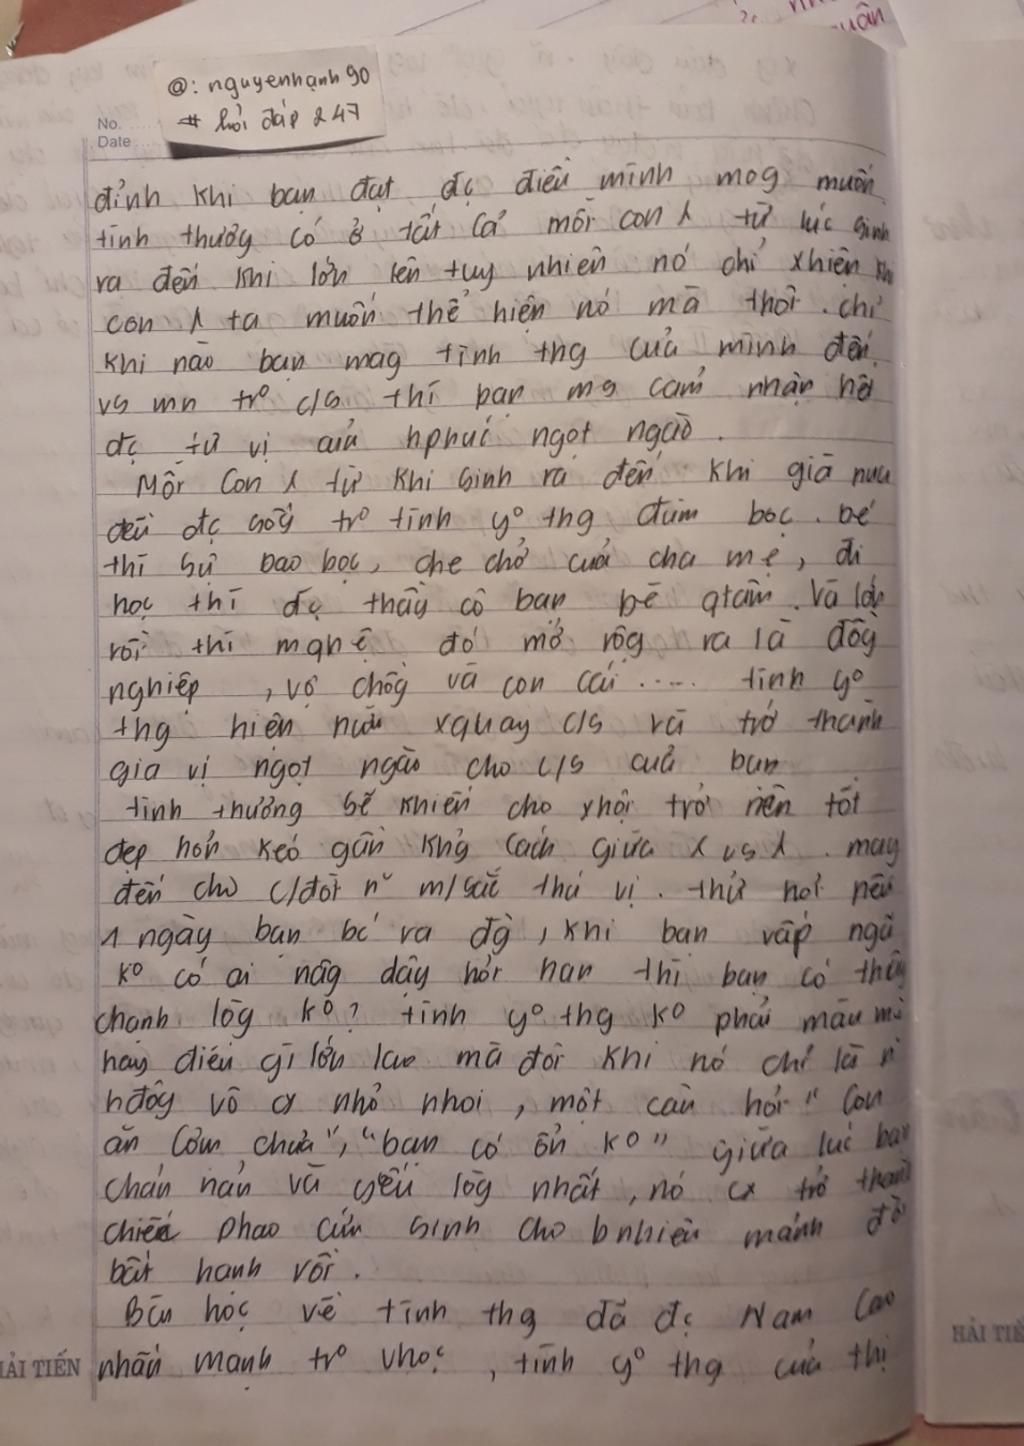 uân
@: nguyenhạnh90
# hỏi đáp 247
No.
Date
đỉnh khi bạn đạt đc điều mình mog muốn
tình thươg có ở tất cả mỗi con λ từ lúc sinh
ra đến khi lớn lên tuy nhiên nó chỉ xhiện khi
con λ ta muốn thể hiện nó mà thôi. chỉ
khi nào bạn mag tình thg của mình đến
vs mn tr° c/s thì bạn ms cảm nhận hết
đc tư vị của hphúc ngọt ngào.
Mỗi con λ từ khi sinh ra đến khi già nua
đều đc sốg tr° tình y° thg đùm bọc. bé
thì sự bao bọc, che chở của cha mẹ, đi
học thì đc thầy cô bạn bè qtâm. Và lớn
rồi thì mqhệ đó mở rộg ra là đồg
nghiệp , vợ chồg và con cái ..... tình y°
thg hiện hữu xquay c/s và trở thành
gia vị ngọt ngào cho c/s của bạn
tình thương sẽ khiến cho xhội trở nên tốt
đẹp hơn kéo gần khg cách giữa λ vs λ. mag
đến cho c/đời n~ m/sắc thú vị. thử hỏi nếu
1 ngày bạn bc ra đg, khi bạn vấp ngã
k° có ai nâg dậy hỏi han thì bạn có thấy
chạnh lòg k°? tình y° thg k° phải màu mè
hay điều gì lớn lao mà đôi khi nó chỉ là n~
hđộg vô cx nhỏ nhoi, một câu hỏi "con
ăn cơm chưa", "bạn có ổn k°" giữa lúc bạn
chán nản và yếu lòg nhất, nó cx trở thành
chiếc phao cứu sinh cho bnhiêu mảnh đời
bất hạnh rồi.
Bài học về tình thg đã đc Nam Cao
nhấn mạnh tr° vhọc, tình y° thg của thị
HẢI TIẾN
HẢI TIẾ